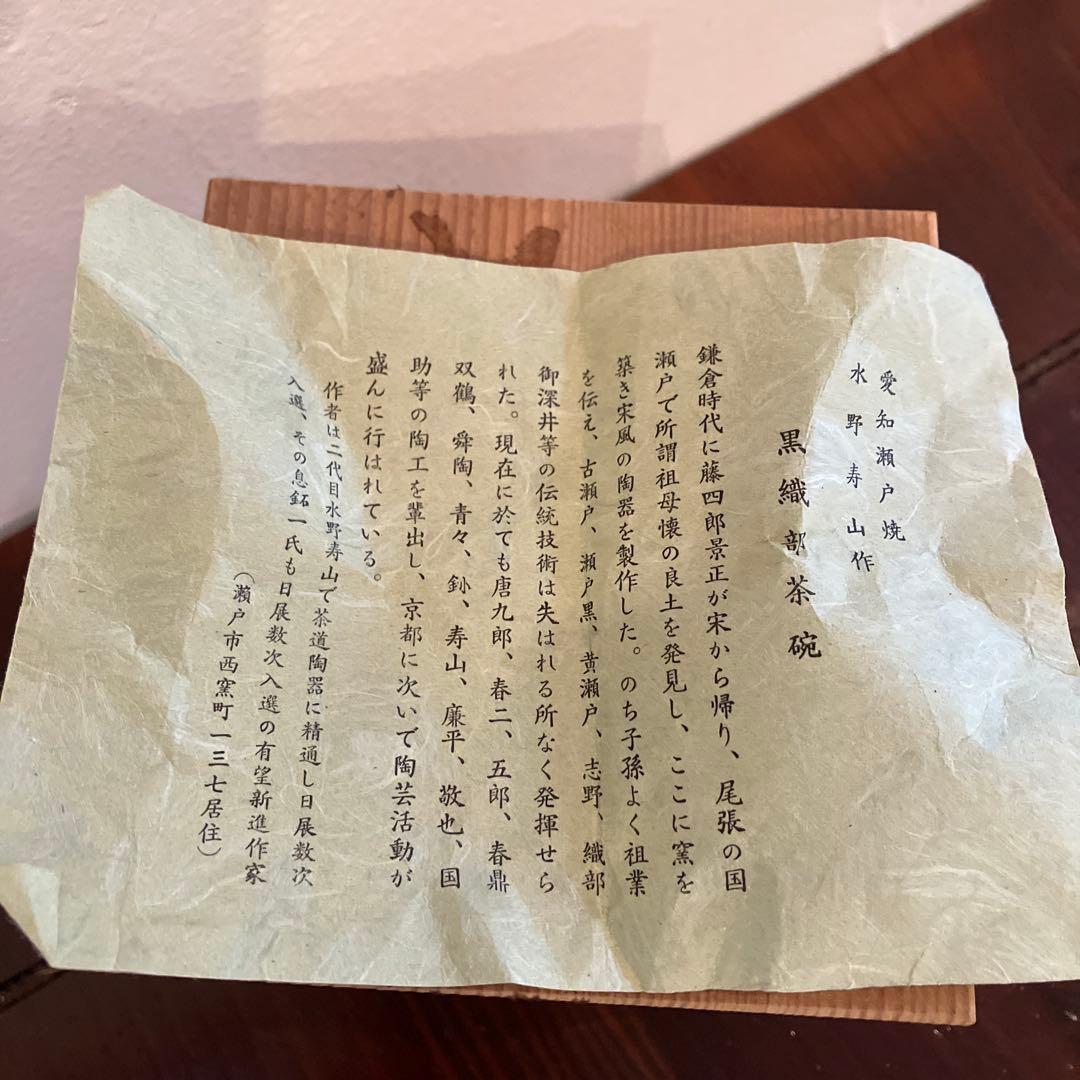 愛知瀬戸焼
水野寿山作
黒織部茶碗
鎌倉時代に藤四郎景正が宋から帰り、尾張の国
瀬戸で所謂祖母懐の良土を発見し、ここに窯を
築き宋風の陶器を製作した。のち子孫よく祖業
を伝え、古瀬戸、瀬戸黒、黄瀬戸、志野、織部
御深井等の伝統技術は失はれる所なく発揮せら
れた。現在に於ても唐九郎、春二、五郎、春鼎
双鶴、舜陶、青々、釥、寿山、廉平、敬也、国
助等の陶工を輩出し、京都に次いで陶芸活動が
盛んに行はれている。
作者は二代目水野寿山で茶道陶器に精通し日展数次
入選、その息鉐一氏も日展数次入選の有望新進作家
(瀬戸市西窯町一三七居住)